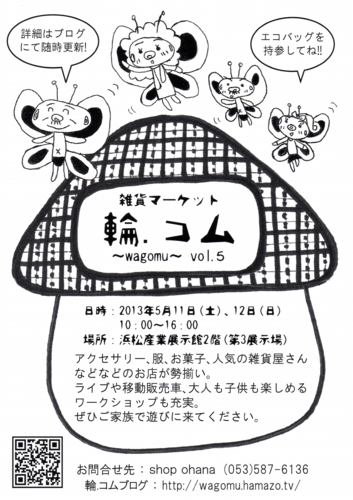 詳細はブログ
にて随時更新!
エコバッグを
持参してね!!
雑貨マーケット
輪.コム
～wagomu～ vol.5
日時：2013年5月11日(土)、12日(日)
10：00～16：00
場所：浜松産業展示館2階(第3展示場)
アクセサリー、服、お菓子、人気の雑貨屋さん
などなどのお店が勢揃い。
ライブや移動販売車、大人も子供も楽しめる
ワークショップも充実。
ぜひご家族で遊びに来てください。
お問合せ先：shop ohana (053)587-6136
輪.コムブログ：http://wagomu.hamazo.tv/